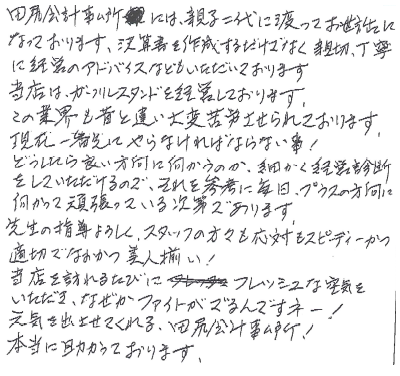 田尻会計事ム所には、親子二代に渡ってお世話に
なっております、決算書を作成するだけでなく親切、丁寧
に経営のアドバイスなどもいただいております
当店は、ガソリンスタンドを経営しております、
この業界も昔と違い大変苦労させられております、
現在一番先にやらなければならない事!
どうしたら良い方向に向かうのか、細かく経営診断
をしていただけるので、それを参考に毎日、プラスの方向に
向かって頑張っている次第であります、
先生の指導よろしく、スタッフの方々も応対もスピーディーかつ
適切でなおかつ美人揃い!
当店を訪れるたびにフレッシュな空気を
いただき、なぜかファイトがでるんですネー!
元気を出させてくれる、田尻会計事ム所!
本当に助かっております、